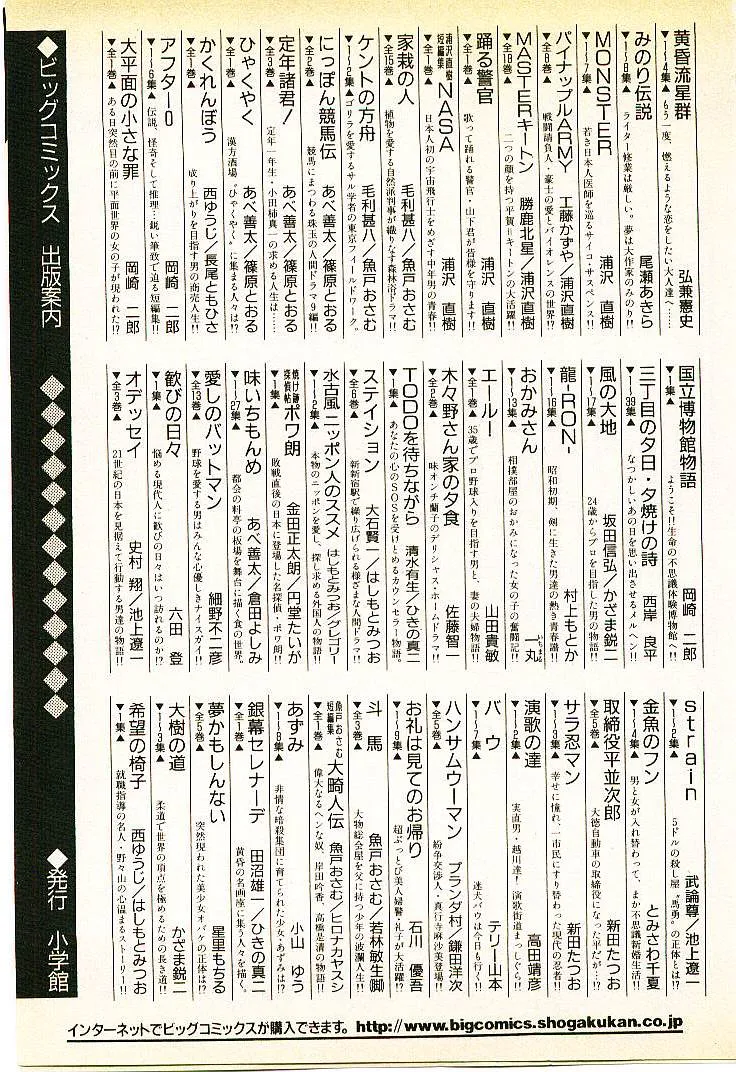 黄昏流星群　弘兼憲史
▼1〜4集▲　もう一度、燃えるような恋をしたい大人達へ……
みのり伝説　尾瀬あきら
▼1〜9集▲　ライター修業は厳しい。夢は大作家のみのり!!
MONSTER　浦沢　直樹
▼1〜7集▲　若き日本人医師を巡るサイコ・サスペンス!!
パイナップルARMY　工藤かずや／浦沢直樹
▼全8巻▲　戦闘請負人・豪士の愛とバイオレンスの世界!?
MASTERキートン　勝鹿北星／浦沢直樹
▼全18巻▲　二つの顔を持つ平賀＝キートンの大活躍!!
踊る警官　浦沢　直樹
▼全1巻▲　歌って踊れる警官・山下君が皆様を守ります!!
浦沢直樹短編集　NASA　浦沢　直樹
▼全1巻▲　日本人初の宇宙飛行士をめざす中年男の青春!!
家栽の人　毛利甚八／魚戸おさむ
▼全15巻▲　植物を愛する自然派判事が織りなす森林浴ドラマ!!
ケントの方舟　毛利甚八／魚戸おさむ
▼1〜2集▲　ゴリラを愛するサル学者の東京フィールドワーク。
にっぽん競馬伝　あべ善太／篠原とおる
▼全2巻▲　競馬にまつわる珠玉の人間ドラマ9編!!
定年諸君！　あべ善太／篠原とおる
▼全3巻▲　定年一年生・小田柿真一の求める人生は……
ひゃくやく　あべ善太／篠原とおる
▼全1巻▲　漢方酒場〝ひゃくやく〟に集まる人々は!?
かくれんぼう　西ゆうじ／長尾ともひさ
▼全1巻▲　成り上がりを目指す男の商売人生!!
アフター0　岡崎　二郎
▼1〜6集▲　伝説、怪奇そして推理…鋭い筆致で迫る短編集!!
大平面の小さな罪　岡崎　二郎
▼全1巻▲　ある日突然目の前に平面世界の女の子が現われた!?
国立博物館物語　岡崎　二郎
▼1集▲　ようこそ!!生命の不思議体験博物館へ!!
三丁目の夕日・夕焼けの詩　西岸　良平
▼1〜39集▲　なつかしいあの日を思い出させるメルヘン!!
風の大地　坂田信弘／かざま鋭二
▼1〜17集▲　24歳からプロを目指した男の物語!!
龍-RON-　村上もとか
▼1〜16集▲　昭和初期、剣に生きた男達の熱き青春譜!!
おかみさん　一丸
いちまる
▼1〜13集▲　相撲部屋のおかみになった女の子の奮闘記!!
エールー　山田貴敏
▼全1巻▲　35歳でプロ野球入りを目指す男と、妻の夫婦物語!!
木々野さん家の夕食　佐藤智一
▼全2巻▲　味オンチ蘭子のデリシャス・ホームドラマ!!
TODOを待ちながら　清水有生／ひきの真二
▼1集▲　あなたの心のSOSを受けとめるカウンセラー物語。
ステイション　大石賢一／はしもとみつお
▼全6巻▲　新新宿駅で繰り広げられる様ざまな人間ドラマ!!
水古風ニッポン人のススメ　はしもとみつお／グレゴリー
▼1〜2集▲　本物のニッポンを愛し、探し求める外国人の物語!!
焼け跡探偵帖　ポワ朗　金田正太朗／円堂たいが
▼1集▲　敗戦直後の日本に登場した名探偵・ポワ朗!!
味いちもんめ　あべ善太／倉田よしみ
▼1〜27集▲　都会の料亭の板場を舞台に描く食の世界。
愛しのバットマン　細野不二彦
▼全13巻▲　野球を愛する男はみんな心優しきナイスガイ!!
歓びの日々　六田　登
▼1集▲　悩める現代人に歓びの日々はいつ訪れるのか!?
オデッセイ　史村　翔／池上遼一
▼全3巻▲　21世紀の日本を見据えて行動する男達の物語!!
strain　武論尊／池上遼一
▼1〜2集▲　5ドルの殺し屋〝馬勇〟の正体とは!?
金魚のフン　とみさわ千夏
▼1〜4集▲　男と女が入れ替わって、まか不思議新婚生活!!
取締役平並次郎　新田たつお
▼全5巻▲　大徳自動車の取締役になった平だが…!?
サラ忍マン　新田たつお
▼1〜3集▲　幸せに憧れ、一市民にすり替わった現代の忍者!!
演歌の達　高田靖彦
▼1〜2集▲　実直男！越川達！演歌街道まっしぐら!!
バウ　テリー山本
▼1〜7集▲　迷犬バウは今日も行く!!
ハンサムウーマン　ブランダ村／鎌田洋次
▼全5巻▲　紛争交渉人・真行寺麻沙美登場!!
お礼は見てのお帰り　石川　優吾
▼1〜9集▲　超ぶっとび美人婦警・礼子が大活躍!?
斗馬　魚戸おさむ／若林敏生(脚)
▼全3巻▲　大物総会屋を父に持つ少年の波瀾人生!!
魚戸おさむ短編集　大畸人伝　魚戸おさむ／ヒロナカヤスシ
▼全1巻▲　偉大なるヘンな奴、岸田吟香、高橋是清の物語!!
あずみ　小山　ゆう
▼1〜8集▲　非情な暗殺集団に育てられた少女・あずみは!?
銀幕セレナーデ　田沼雄一／ひきの真二
▼全1巻▲　黄昏の名画座に集う人々を描く。
夢かもしんない　星里もちる
▼全5巻▲　突然現われた美少女オバケの正体は!?
大樹の道　かざま鋭二
▼1〜3集▲　柔道で世界の頂点を極めるための長き道!!
希望の椅子　西ゆうじ／はしもとみつお
▼1集▲　就職指導の名人・野々山の心温まるストーリー!!
◆ビッグコミックス　出版案内　◆◆◆◆◆◆◆◆◆◆◆◆◆　◆発行　小学館
インターネットでビッグコミックスが購入できます。 http://www.bigcomics.shogakukan.co.jp